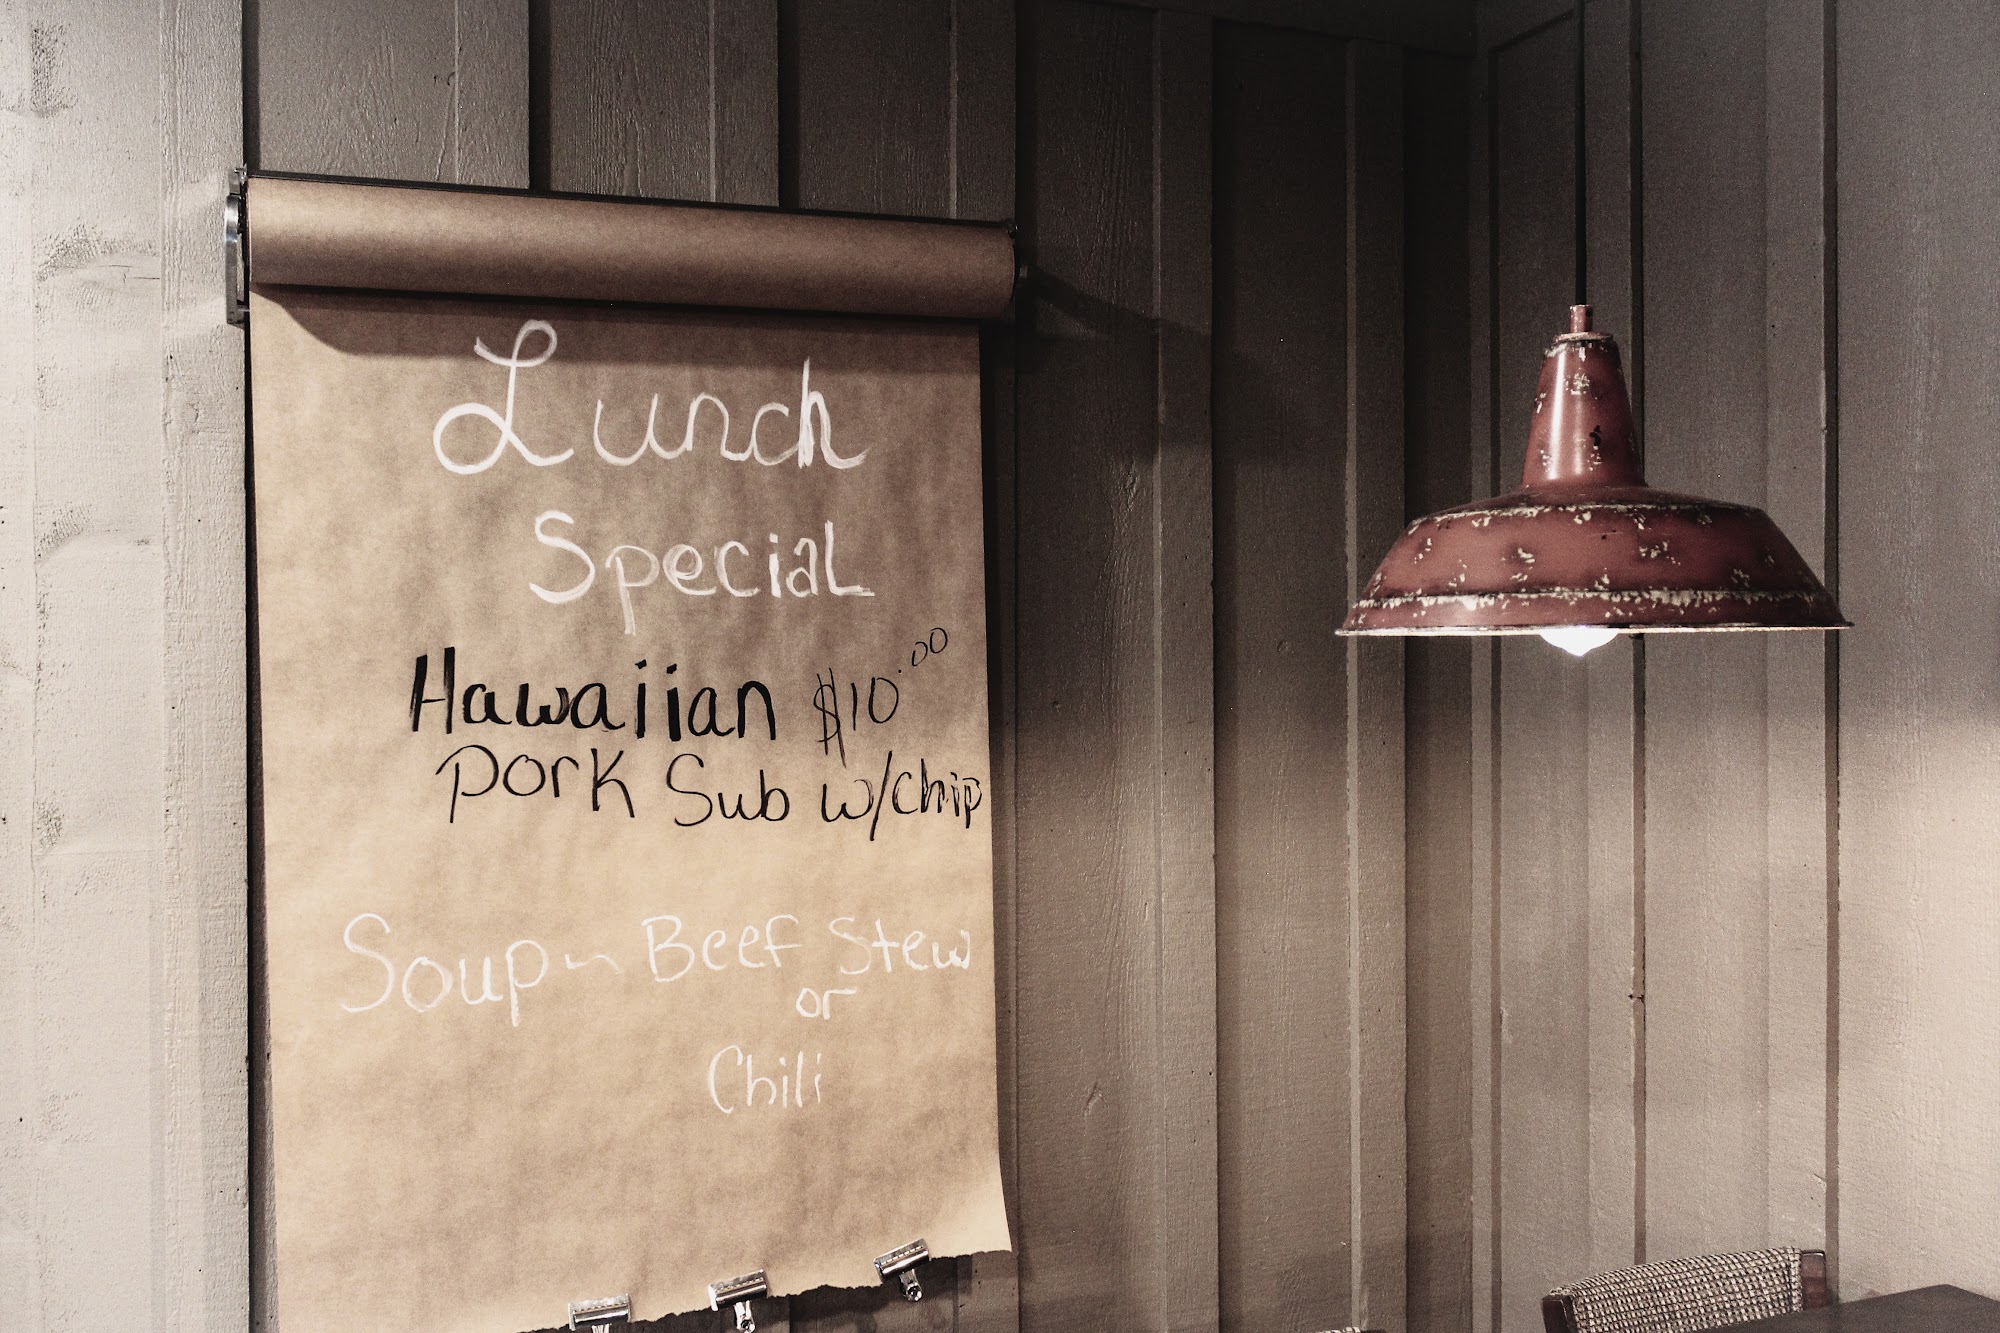 Lunch
Special
Hawaiian $10.00
Pork Sub w/chip
Soup ~ Beef Stew
or
Chili